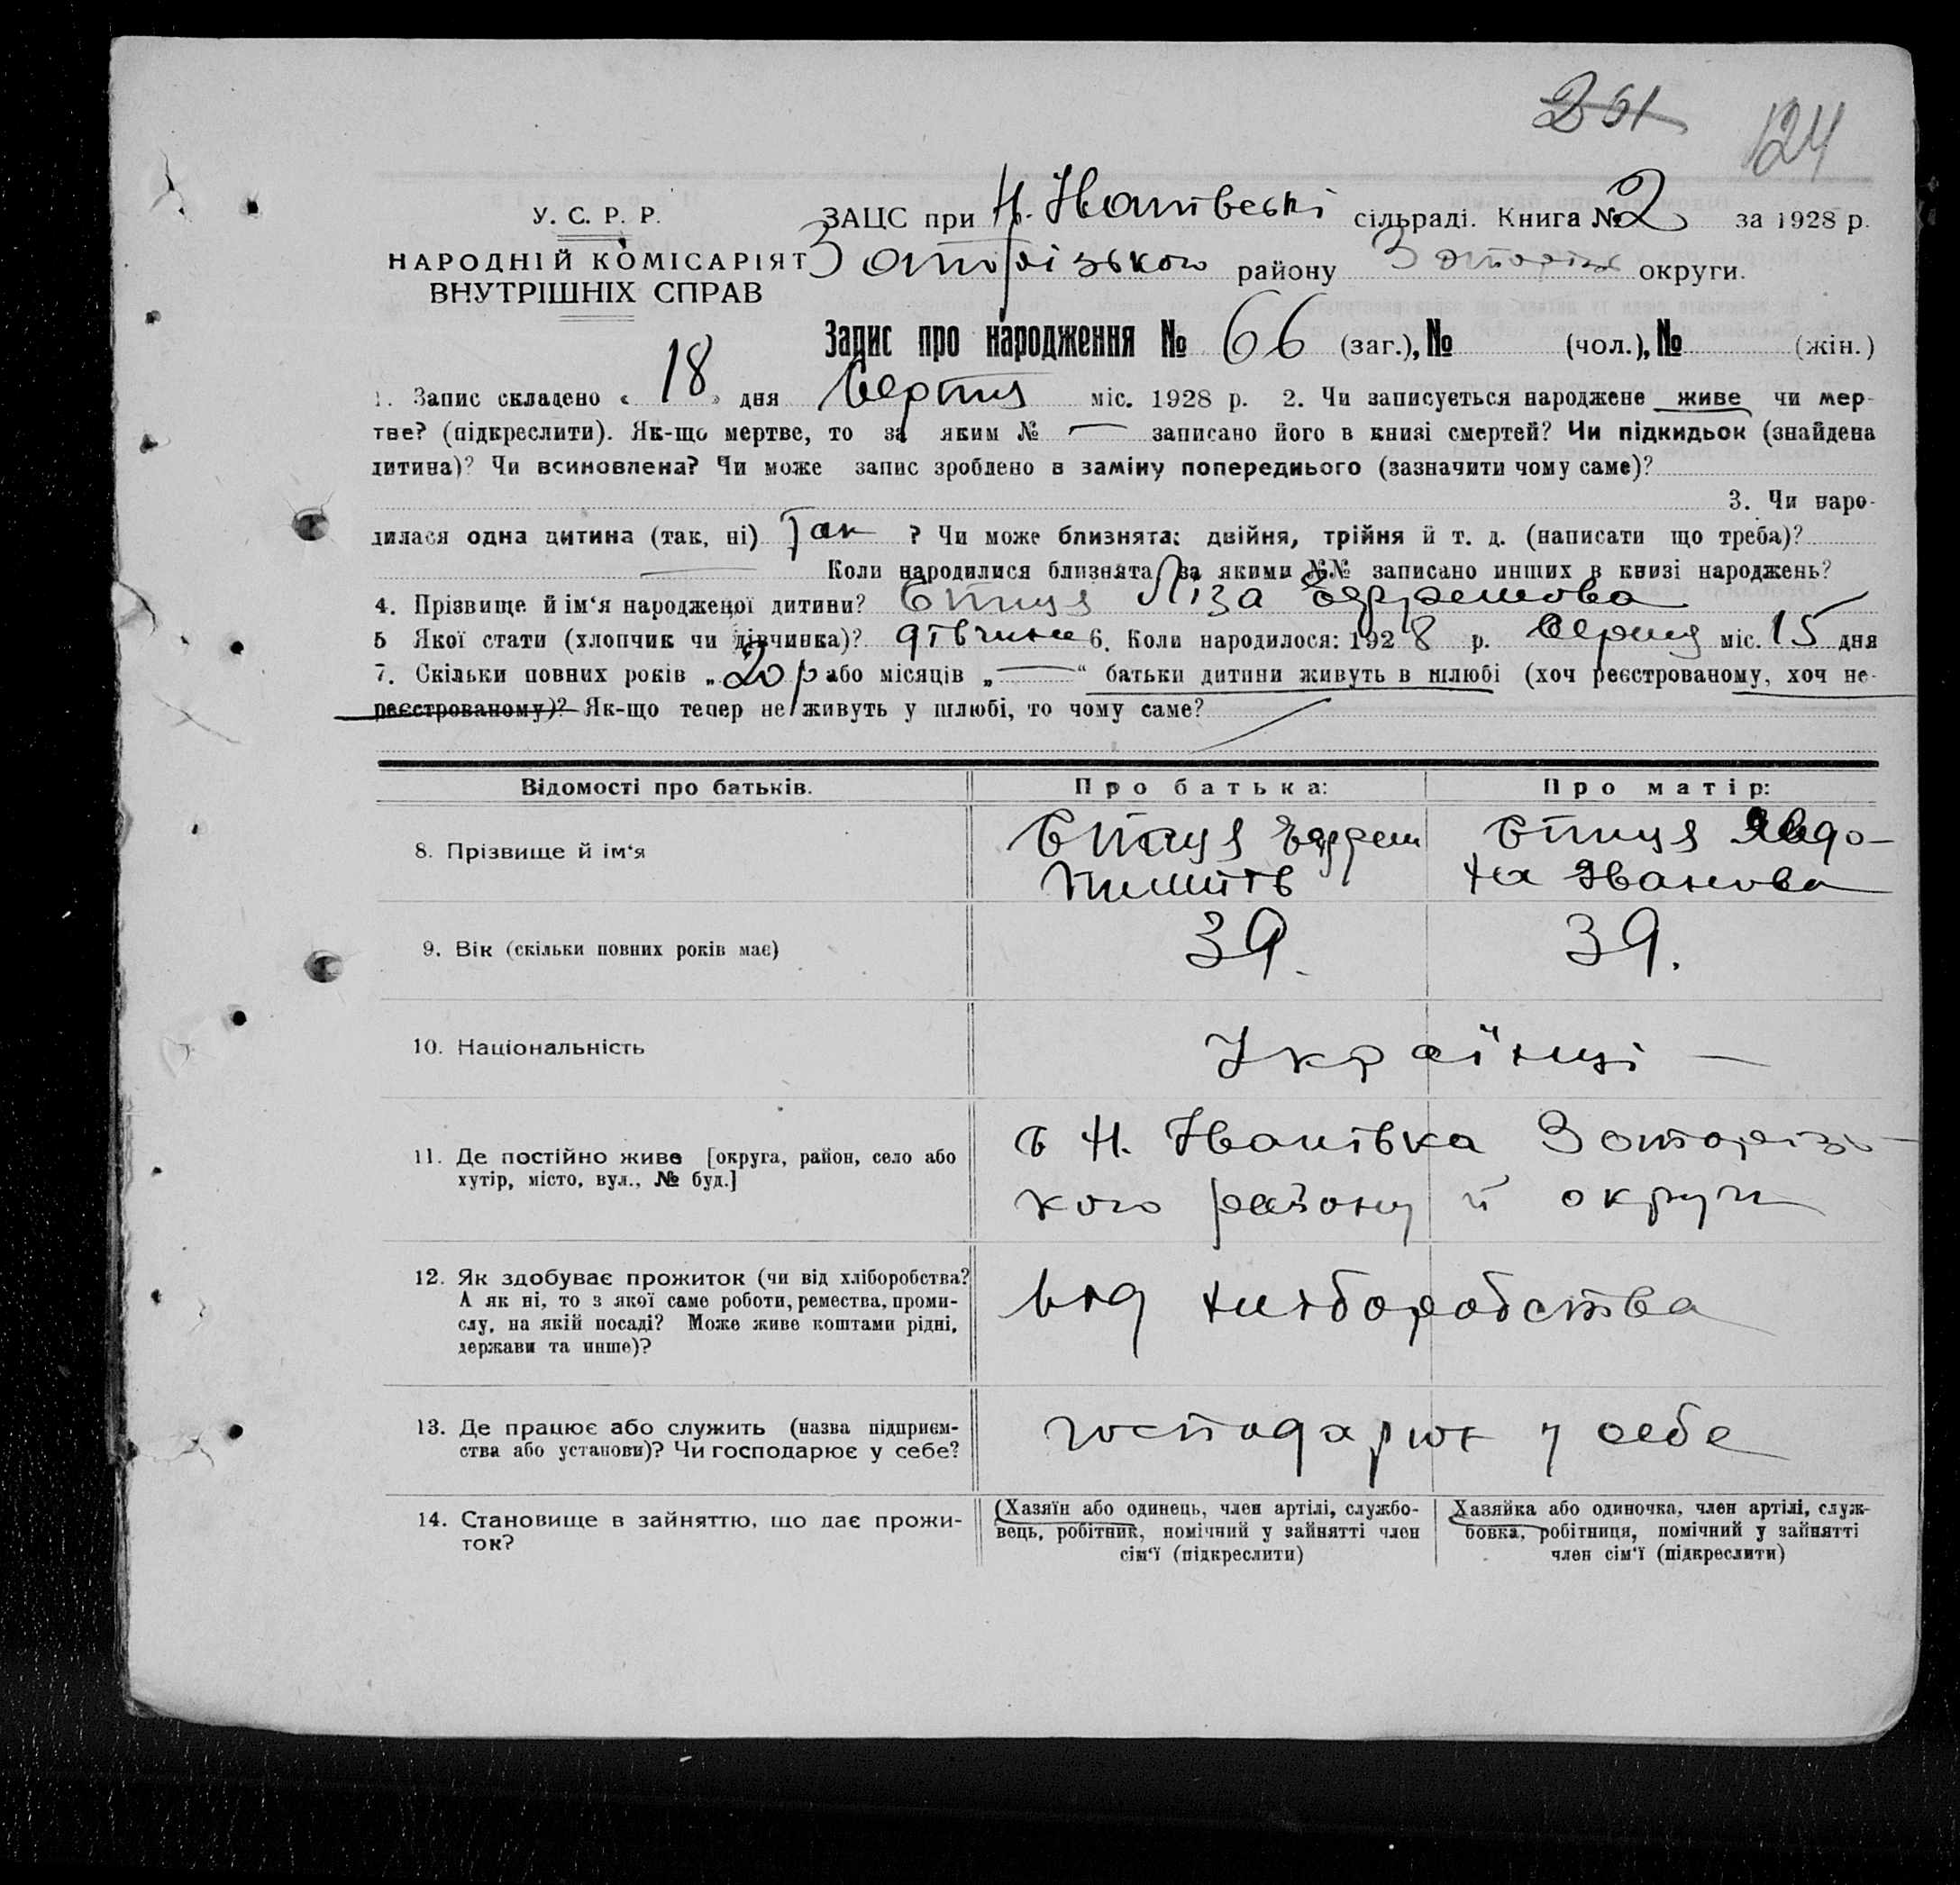 251
124
У. С. Р. Р.
НАРОДНІЙ КОМІСАРІЯТ
ВНУТРІШНІХ СПРАВ
ЗАЦС при Н. Іванівські сільраді. Книга № 2 за 1928 р.
Запорізького району Запоріж округи.
Запис про народження № 66 (заг.), № (чол.), № (жін.)
1. Запис складено « 18 » дня Серпня міс. 1928 р. 2. Чи записується народжене живе чи мер-
тве? (підкреслити). Як-що мертве, то за яким № — записано його в книзі смертей? Чи підкидьок (знайдена
дитина)? Чи всиновлена? Чи може запис зроблено в заміну попереднього (зазначити чому саме)?
3. Чи наро-
дилася одна дитина (так, ні) Так ? Чи може близнята: двійня, трійня й т. д. (написати що треба)?
Коли народилися близнята, за якими №№ записано инших в книзі народжень?
4. Прізвище й ім‘я народженої дитини? Ліза
5 Якої стати (хлопчик чи дівчинка)? дівчина 6. Коли народилося: 1928 р. Серпня міс. 15 дня
7. Скільки повних років „ 20 р або місяців „ — “ батьки дитини живуть в шлюбі (хоч реєстрованому, хоч не-
реєстрованому)? Як-що тепер не живуть у шлюбі, то чому саме?
Відомості про батьків.
Про батька:
Про матір:
8. Прізвище й ім‘я
Явдо-
ха Іванова
9. Вік (скільки повних років має)
39.
39.
10. Національність
Українці —
11. Де постійно живе [округа, район, село або
хутір, місто, вул., № буд.]
с Н. Іванівка Запорізь-
кого району й округи
12. Як здобуває прожиток (чи від хліборобства?
А як ні, то з якої саме роботи, ремества, проми-
слу, на якій посаді? Може живе коштами рідні,
держави та инше)?
від хліборобства
13. Де працює або служить (назва підприєм-
ства або установи)? Чи господарює у себе?
господарює у себе
14. Становище в зайняттю, що дає прожи-
ток?
(Хазяїн або одинець, член артілі, службо-
вець, робітник, помічний у зайнятті член
сім‘ї (підкреслити)
Хазяйка або одиночка, член артілі, служ-
бовка, робітниця, помічний у зайнятті
член сім‘ї (підкреслити)